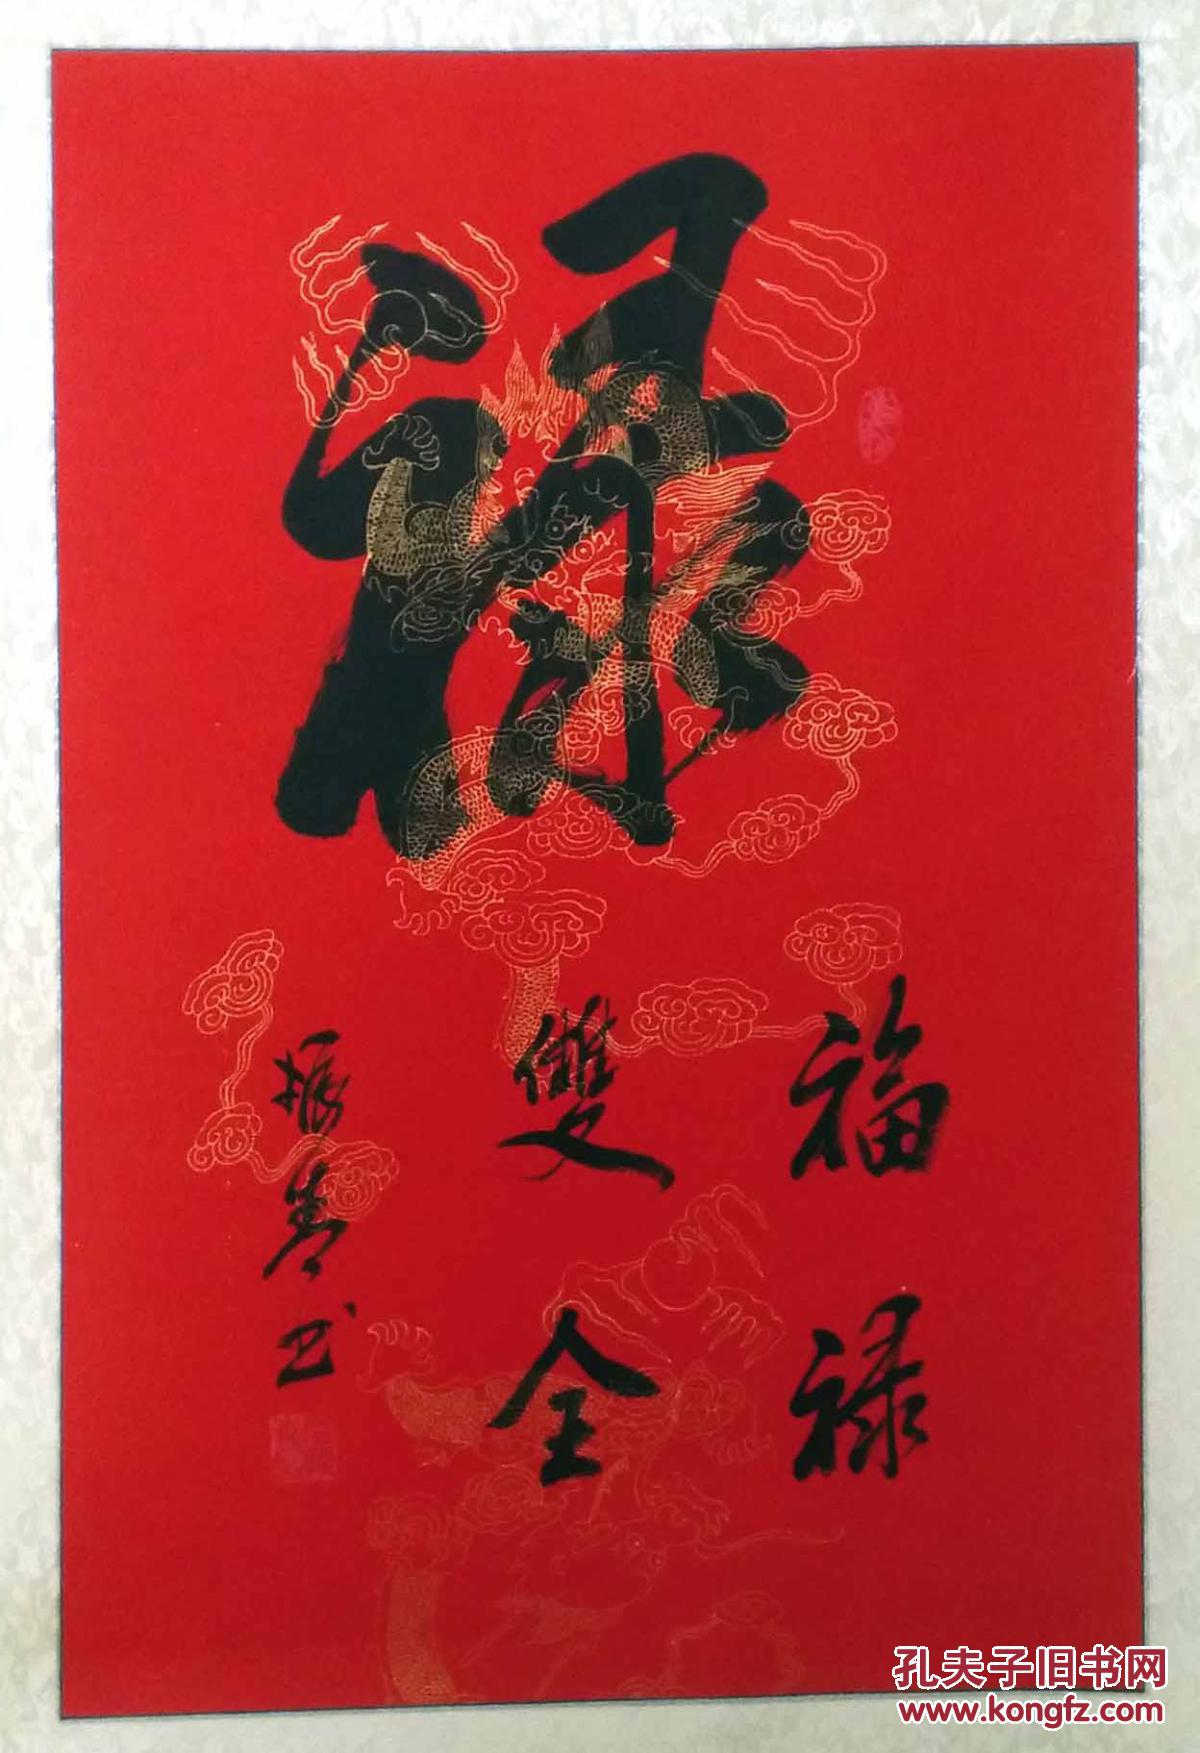 禄
福禄
雙全
振春书
孔夫子旧书网
www.kongfz.com